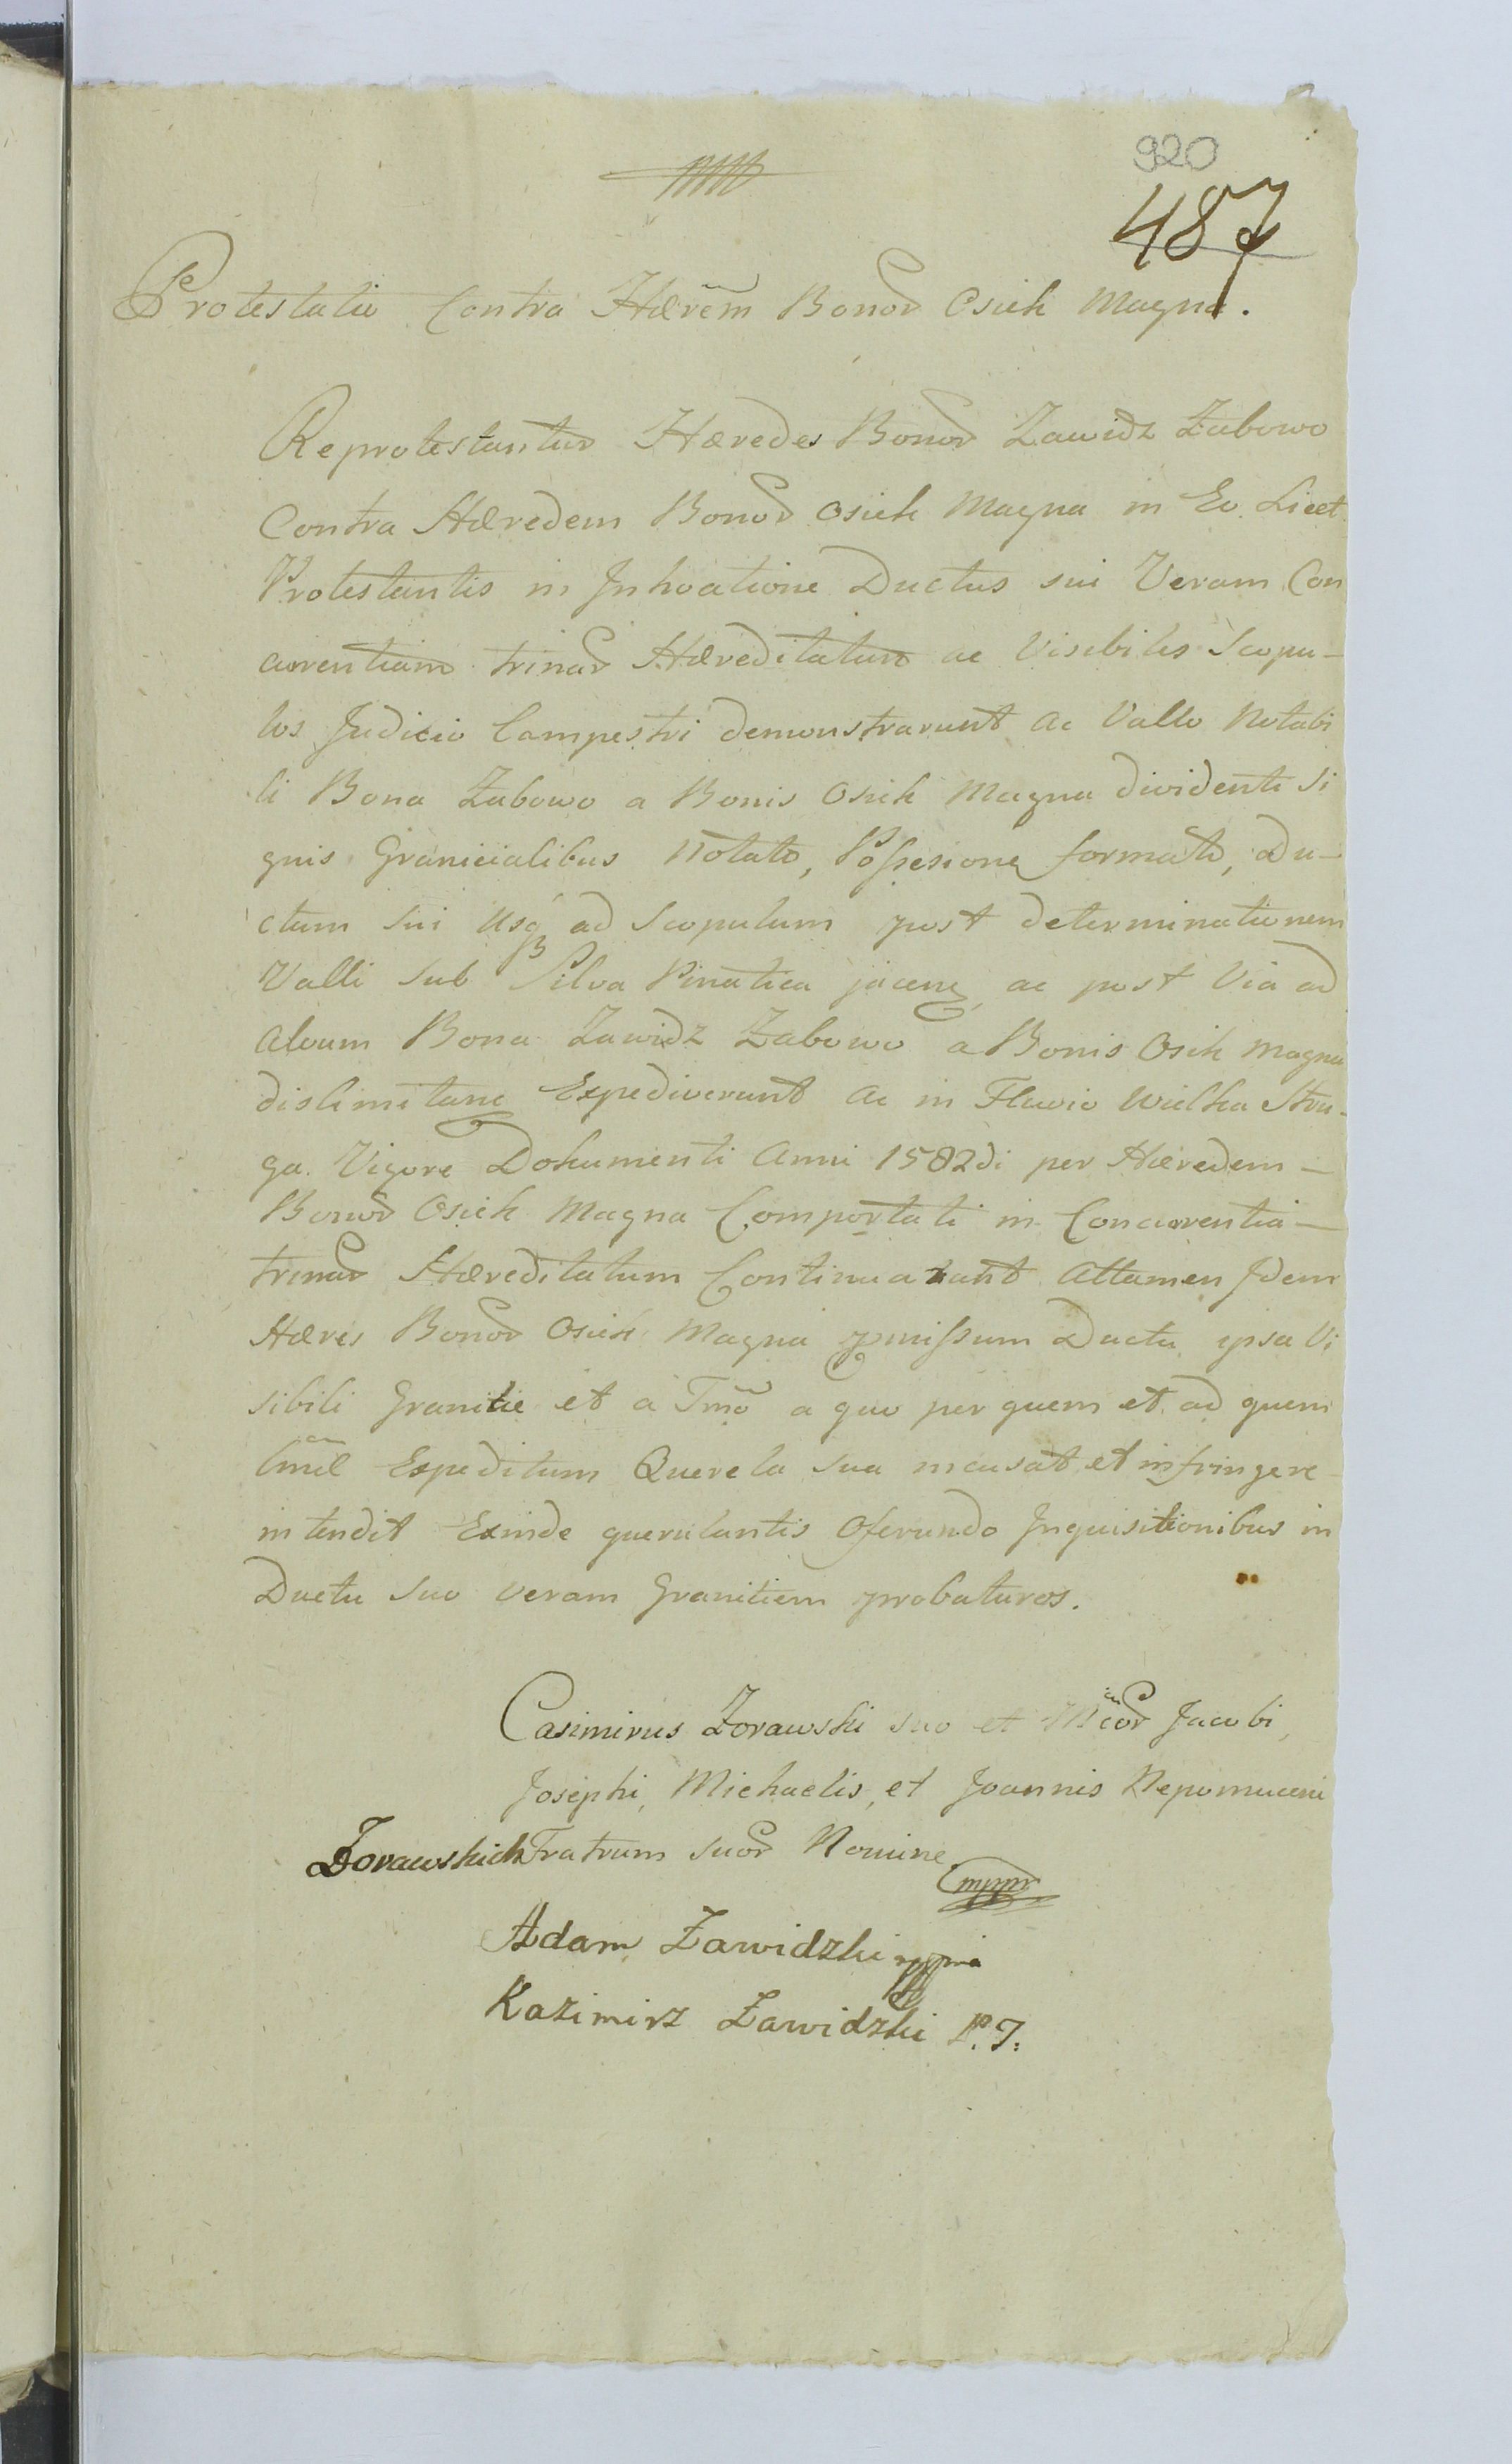 920
487
Protestatio Contra Hærem̃ Bonor Osiek Magna.
Reprotestantur Hæredes Bonor Zawidz Żabowo
Contra Hæredem Bonor Osiek Magna in Eo. Licet
Protestantis in Inhoatione Ductus sui Veram Con
currentiam trinar Hæreditatum ac Visibiles Scopu-
los Judicio Campestri demonstrarunt ac Vallo Notabi
li Bona Żabowo a Bonis Osiek Magna dividenti Si
gnis Granicialibus Notato, Possesione formato, Du-
ctum sui Usq ad Scopulum post determinationem
Valli sub Silva Pinatica jacen ac post Via ad
Alvum Bona Zawidz Żabowo a Bonis Osiek Magna
dislimitane Expediverunt ac in Fluvio Wielka Stru-
ga. Vigore Dokumenti Anni 1582di per Hæredem-
Bonor Osiek Magna Comportati in Concurrentia-
trinar Hæreditatum Continuarant Attamen Idem
Hæres Bonor Osiek Magna pmissum Ductu ipsa Vi
sibili Granitie et a Tmo a quo per quem et ad quem
Expeditum Querela sua incusat et infringere
intendit Exinde querulantis Oferundo Inquisitionibus in
Ductu suo veram Granitiem probaturos.
Casimirus Zorawski suo et Jacobi,
Josephi, Michaelis, et Joannis Nepomuceni
Zorawskich Fratrum suor Nomine mppr
Adam Zawidzki mppria
Kazimirz Zawidzki P.J: